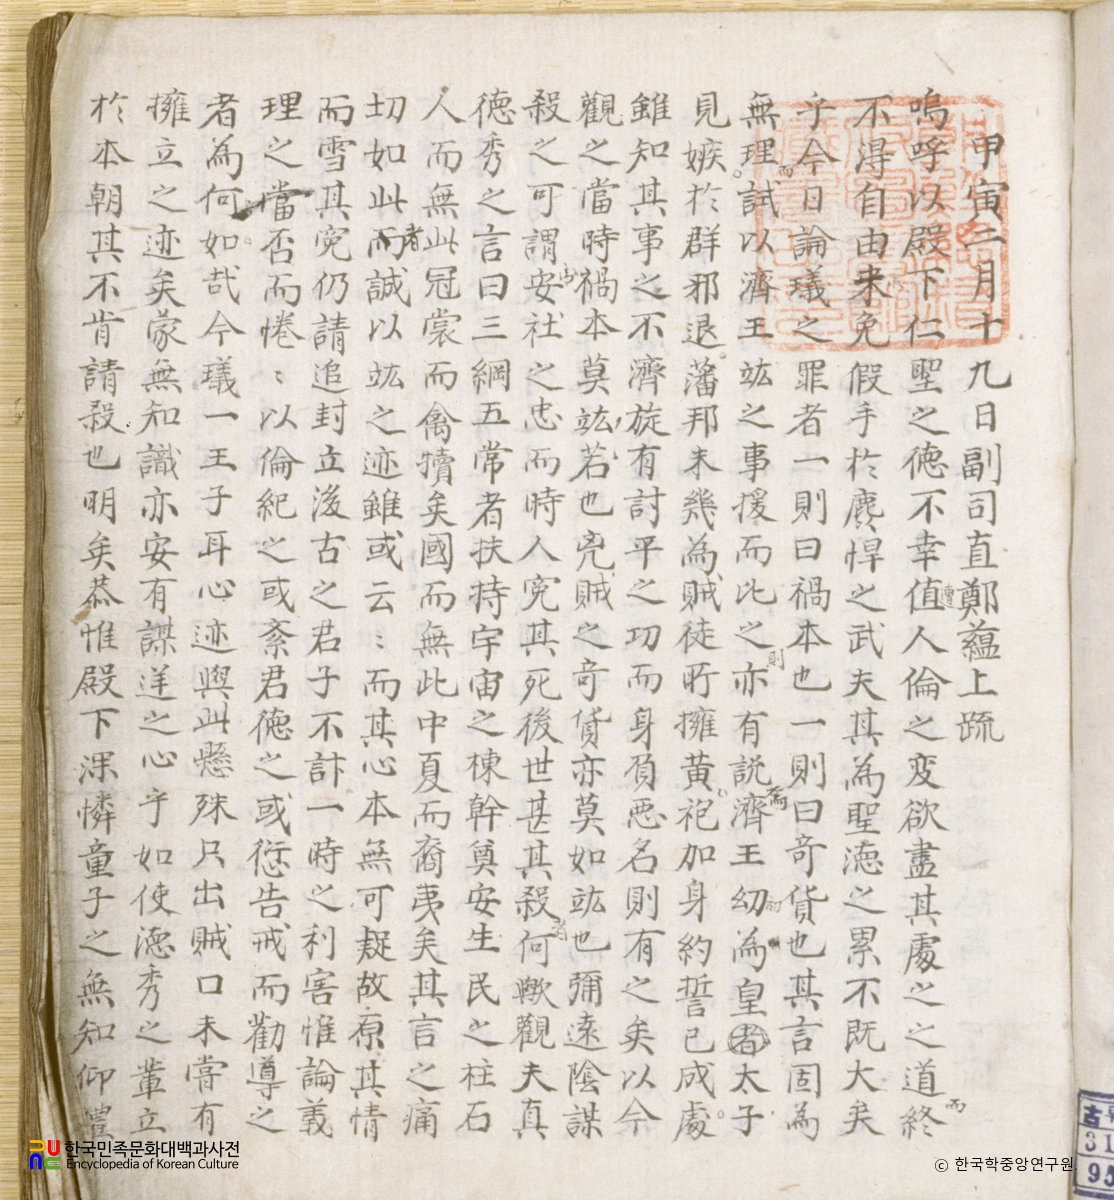 甲寅二月十九日副司直鄭蘊上疏
嗚呼以殿下仁聖之德不幸值人倫之変欲盡其處之之道終
不淂自由未免假手於麤悍之武夫其為聖德之累不既大矣
乎今日論㼁之罪者一則曰禍本也一則曰奇貨也其言固為
無理試以濟王竑之事援而比之亦有説濟王幼為皇者太子
見嫉於群邪退藩邦未幾為賊徒所擁黃袍加身約誓已成處
雖知其事之不濟旋有討平之功而身負悪名則有之矣以今
觀之當時禍本莫竑若也兇賊之奇貨亦莫如竑也彌遠陰謀
殺之可謂安社之忠而時人寃其死後世甚其殺何歟觀夫真
德秀之言曰三綱五常者扶持宇宙之棟幹奠安生民之柱石
人而無此冠裳而禽犢矣國而無此中夏而裔夷矣其言之痛
切如此而誠以竑之迹雖或云〻而其心本無可疑故原其情
而雪其寃仍請追封立後古之君子不計一時之利害惟論義
理之當否而惓〻以倫紀之或紊君德之或愆告戒而勸導之
者為何如哉今㼁一王子耳心迹與此懸殊只出賊口未嘗有
擁立之迹矣蒙無知識亦安有謀逆之心乎如使德秀之輩立
於本朝其不肯請殺也明矣恭惟殿下深憐童子之無知仰
한국민족문화대백과사전
Encyclopedia of Korean Culture
ⓒ 한국학중앙연구원